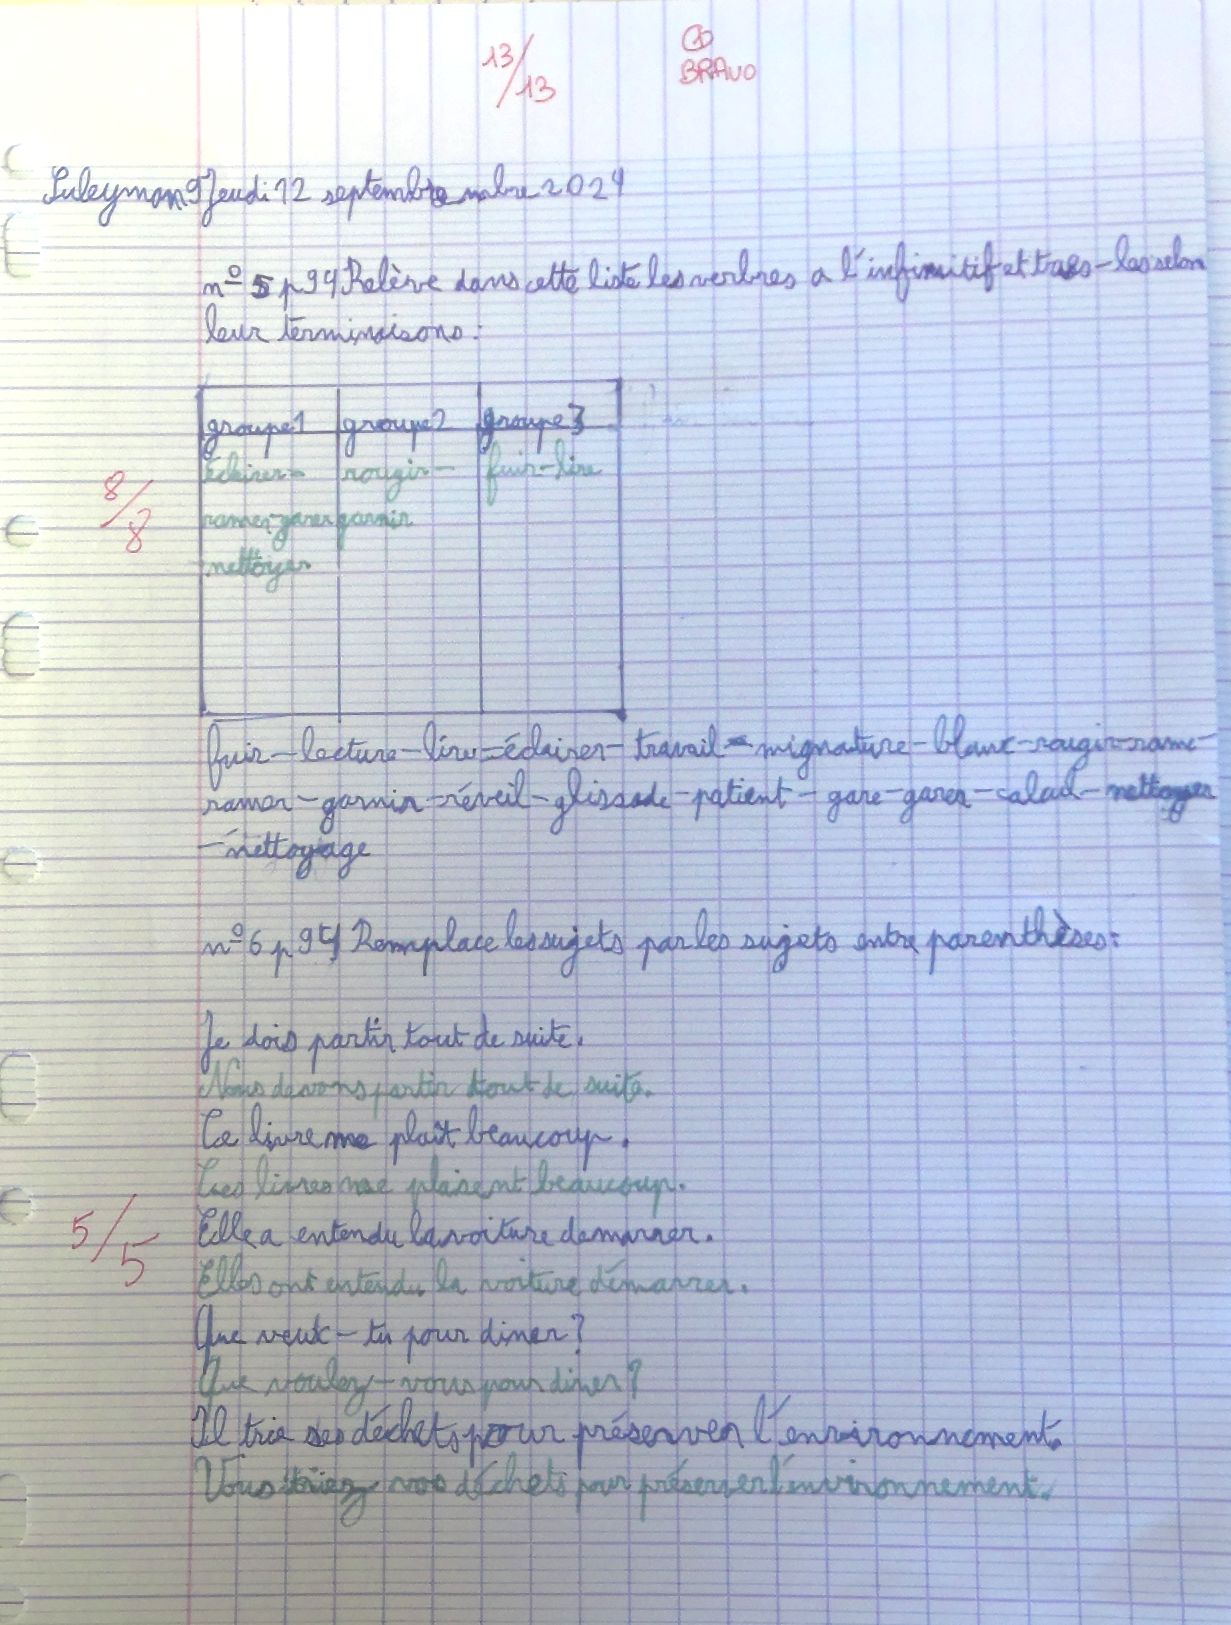 13/13
BRAVO
Suleyman Jeudi 12 septembre 2024
n° 5 p 94 Relève dans cette liste les verbres a l'infinitif et les selon
leur terminaisons:
groupe1 groupe2 groupe3
éclairer- rougir- fuir-lire
ramer-garer garnir
nettoyer
8/8
fuir-lecture-lire-éclairer-travail-mignature-blanc-rougir-rame-
ramer-garnir-réveil-glissade-patient-gare-garer-calcul-nettoyer
-nettoyage
n°6 p 94 Remplace les sujets par les sujets entre parenthèses:
Je dois partir tout de suite.
Nous devons partir tout de suite.
Ce livre me plaît beaucoup.
Ces livres me plaisent beaucoup.
5/5
Elle a entendu la voiture demarrer.
Elles ont entendu la voiture démarrer.
Que veux-tu pour diner?
Que voulez-vous pour diner?
Il trie ses déchets pour préserver l'environnement.
Vous triez vos déchets pour préserver l'environnement.